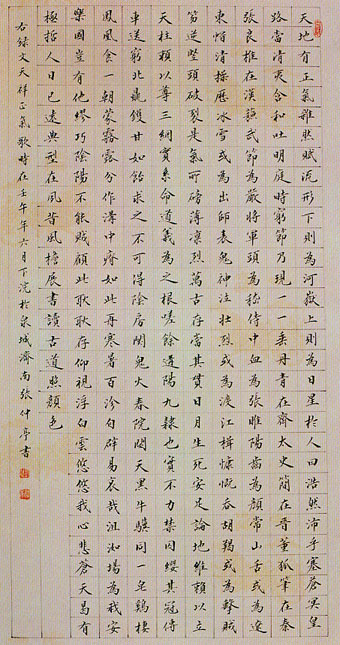 天地有正氣雜然賦流形下則為河嶽上則為日星於人曰浩然沛乎塞蒼冥皇
路當清夷含和吐明庭時窮節乃現一一垂丹青在齊太史簡在晉董狐筆在秦
張良椎在漢蘇武節為嚴將軍頭為嵇侍中血為張睢陽齒為顏常山舌或為遼
東帽清操厲冰雪或為出師表鬼神泣壯烈或為渡江楫慷慨吞胡羯或為擊賊
笏逆豎頭破裂是氣所磅薄凜烈萬古存當其貫日月生死安足論地維賴以立
天柱賴以尊三綱實系命道義為之根嗟餘遘陽九隸也實不力楚囚纓其冠傳
車送窮北鼎鑊甘如飴求之不可得陰房闃鬼火春院閟天黑牛驥同一皂雞棲
鳳凰食一朝蒙霧露分作溝中瘠如此再寒暑百沴自辟易哀哉沮洳場為我安
樂國豈有他繆巧陰陽不能賊顧此耿耿存仰視浮白雲悠悠我心悲蒼天曷有
極哲人日已遠典型在夙昔風檐展書讀古道照顏色
右錄文天祥正氣歌時在壬午年六月下浣於泉城濟南張仲亭書